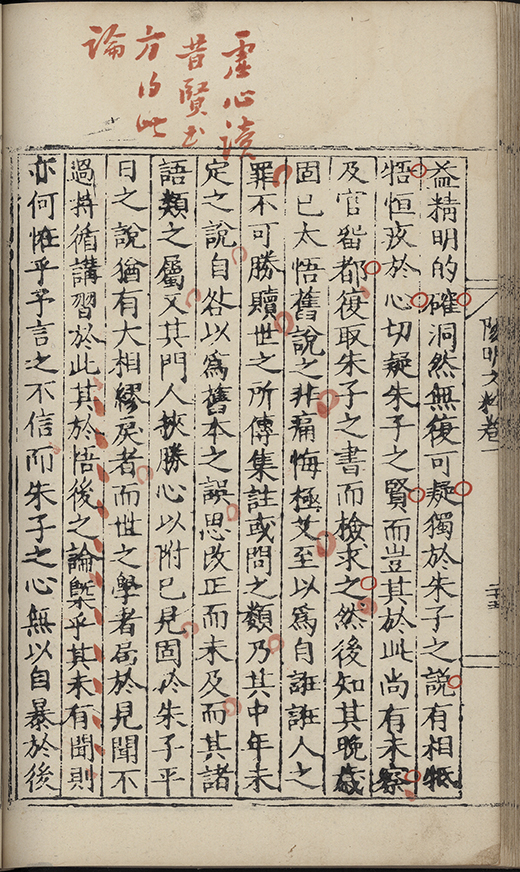 虛心讀
昔賢書
方得此
論
益精明的確洞然無復可疑獨於朱子之說有相牴
牾恒疚於心切疑朱子之賢而豈其於此尚有未察
及官畱都復取朱子之書而檢求之然後知其晚歲
固已太悟舊說之非痛悔極艾至以爲自誑誑人之
罪不可勝贖世之所傳集註或問之類乃其中年未
定之說自咎以爲舊本之誤思改正而未及而其諸
語類之屬又其門人挾勝心以附己見固於朱子平
日之說猶有大相繆戾者而世之學者局於見聞不
過持循講習於此其於悟後之論槩乎其未有聞則
亦何恠乎予言之不信而朱子之心無以自暴於後
陽明文粹卷一
二十五